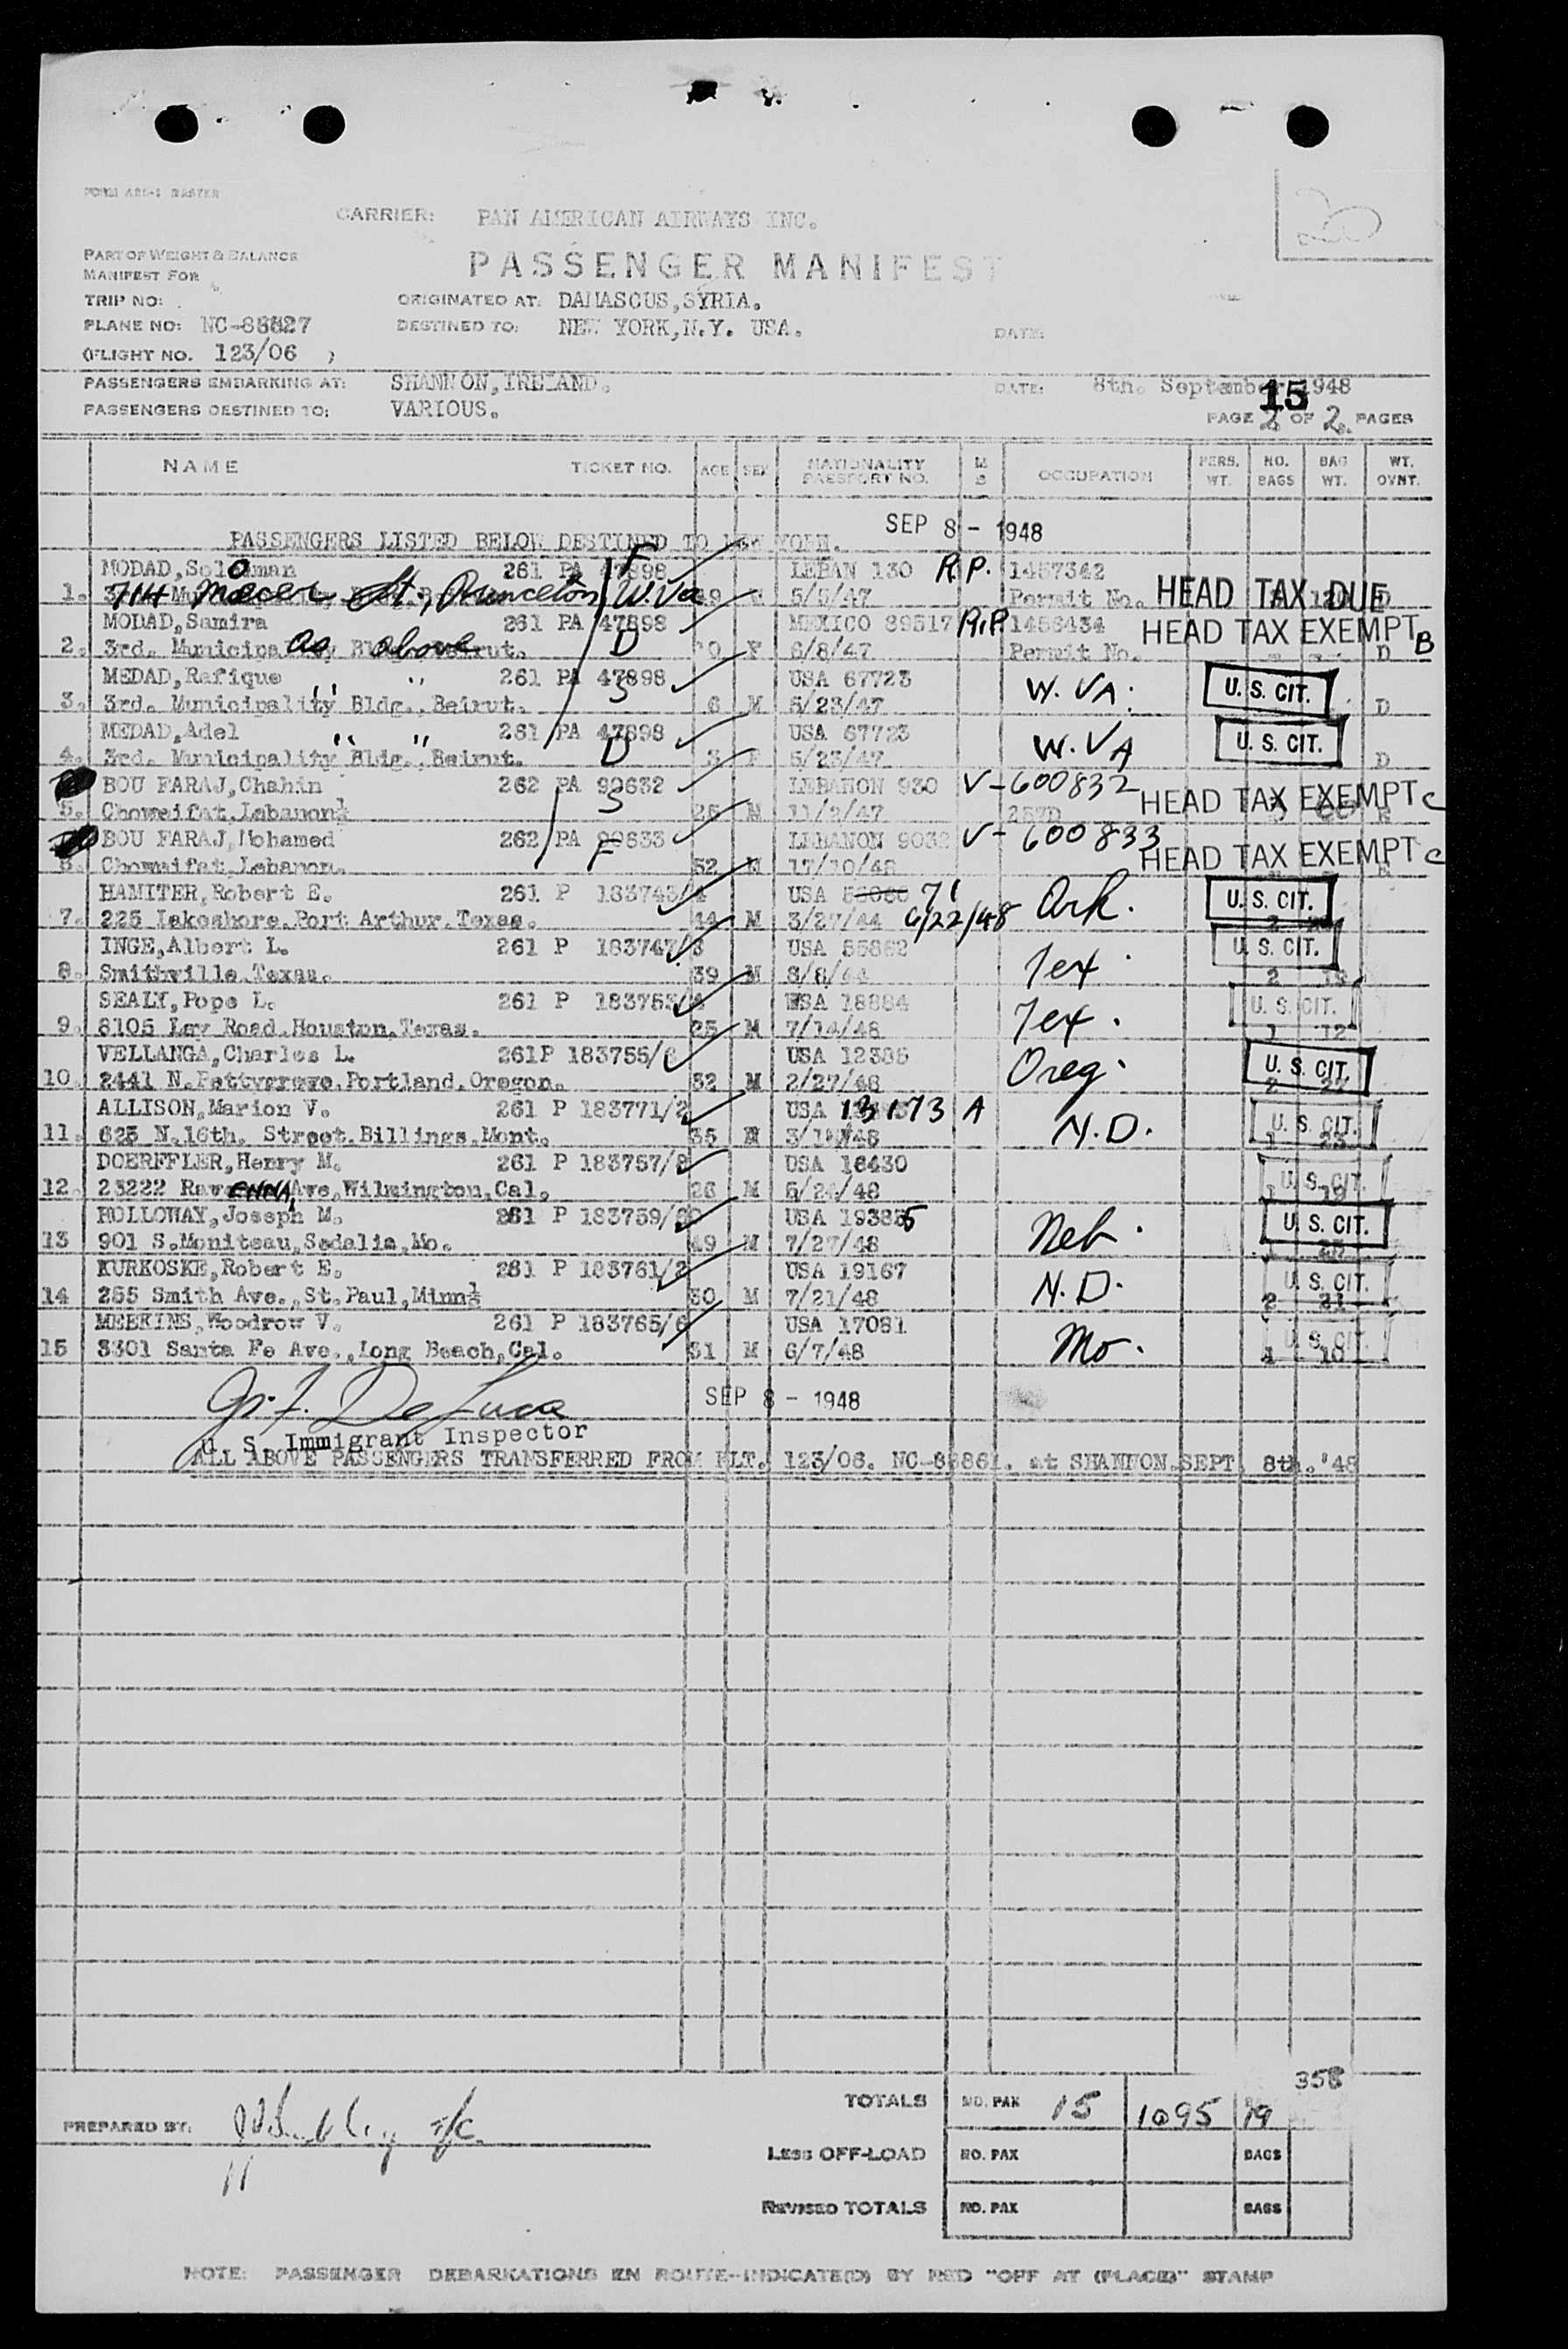 CARRIER: PAN AMERICAN AIRWAYS INC.
PART OF WEIGHT & BALANCE
MANIFEST FOR
PASSENGER MANIFEST
TRIP NO: ORIGINATED AT: DAMASCUS,SYRIA.
PLANE NO: DESTINED TO: NEW YORK,N.Y. USA. DATE:
(FLIGHT NO. 123/06 )
PASSENGERS EMBARKING AT: SHANNON,IRELAND. DATE: 8th. September 1948
15
PASSENGERS DESTINED TO: VARIOUS. PAGE 2 OF 2. PAGES
NAME TICKET NO. AGE SEX NATIONALITY PASSPORT NO. OCCUPATION PERS. WT. NO. BAGS BAG WT. WT. OVNT.
SEP 8 - 1948
PASSENGERS LISTED BELOW DESTINED TO NEW YORK.
MODAD, 261 PA 47898 F LEBAN 130 R.P. 1457342
1. 714 Mercer St., Princeton W.Va 5/5/47 Permit No. HEAD TAX DUE D
MODAD,Samira 261 PA 47898 MEXICO 89517 R.P. 1458434
2. 3rd. as above D F 6/8/47 Permit No. HEAD TAX EXEMPT B D
MEDAD,Rafique " 261 PA 47898 USA 67723
3. 3rd. Municipality Bldg.,Beirut. S 6 M 5/23/47 W. VA. U. S. CIT. D
MEDAD,Adel " " 261 PA 47898 USA 67723
4. 3rd. Municipality Bldg.,Beirut. D 3 F 5/23/47 W. VA U. S. CIT. D
BOU FARAJ,Chahin 262 PA 99632 LEBANON 930 V-600832
5. Choweifat,Lebanon½ S M 11/2/47 257D HEAD TAX EXEMPT C
BOU FARAJ,Mohamed 262 PA 99633 LEBANON 9032 V-600833
6. Choweifat,Lebanon. F 52 M HEAD TAX EXEMPT C
HAMITER,Robert E. 261 P 183743/4 USA 71
7. 225 Lakeshore.Port Arthur.Texas. 44 M 3/27/44 6/22/48 Ark. U. S. CIT.
INGE,Albert L. 261 P 183747/8 USA 85862
8. Smithville.Texas. 39 M 8/8/44 Tex. U. S. CIT.
SEALY,Pope L. 261 P 183753/4 USA 18884
9. 8105 Ley Road.Houston.Texas. 25 M 7/14/48 Tex. U. S. CIT. 1 12
VELLANGA,Charles L. 261P 183755/6 USA 12385
10. 2441 N.Pettygrove.Portland.Oregon. 32 M 2/27/48 Oreg. U. S. CIT.
ALLISON,Marion V. 261 P 183771/2 USA 13173 A
11. 625 N.16th. Street.Billings.Mont. 35 N.D. U. S. CIT. 1 23
DOERFFLER,Henry M. 261 P 183757/8 USA 16430
12. 23222 RavENNA Ave,Wilmington,Cal. 26 M U. S. CIT. 1 19
HOLLOWAY,Joseph M. 261 P 183759/60 USA 19385
13 901 S.Moniteau,Sedalia,Mo. 49 M 7/27/48 Neb. U. S. CIT.
KURKOSKE,Robert E. 261 P 183761/2 USA 19167
14 255 Smith Ave.,St.Paul,Minn½ 30 M 7/21/48 N.D. U. S. CIT. 2 21
MEEKINS,Woodrow V. 261 P 183765/6 USA 17081
15 3301 Santa Fe Ave.,Long Beach,Cal. 31 M 6/7/48 Mo. U. S. CIT. 1 10
De Luca SEP 8 - 1948
U. S. Immigrant Inspector
ALL ABOVE PASSENGERS TRANSFERRED FROM FLT. 123/06. at SHANNON.SEPT. 8th.'48
358
TOTALS NO. PAX 15 1095 19
PREPARED BY:
LESS OFF-LOAD NO. PAX BAGS
11
REVISED TOTALS NO. PAX BAGS
NOTE: PASSENGER DEBARKATIONS EN ROUTE--INDICATE(D) BY RED "OFF AT (PLACE)" STAMP